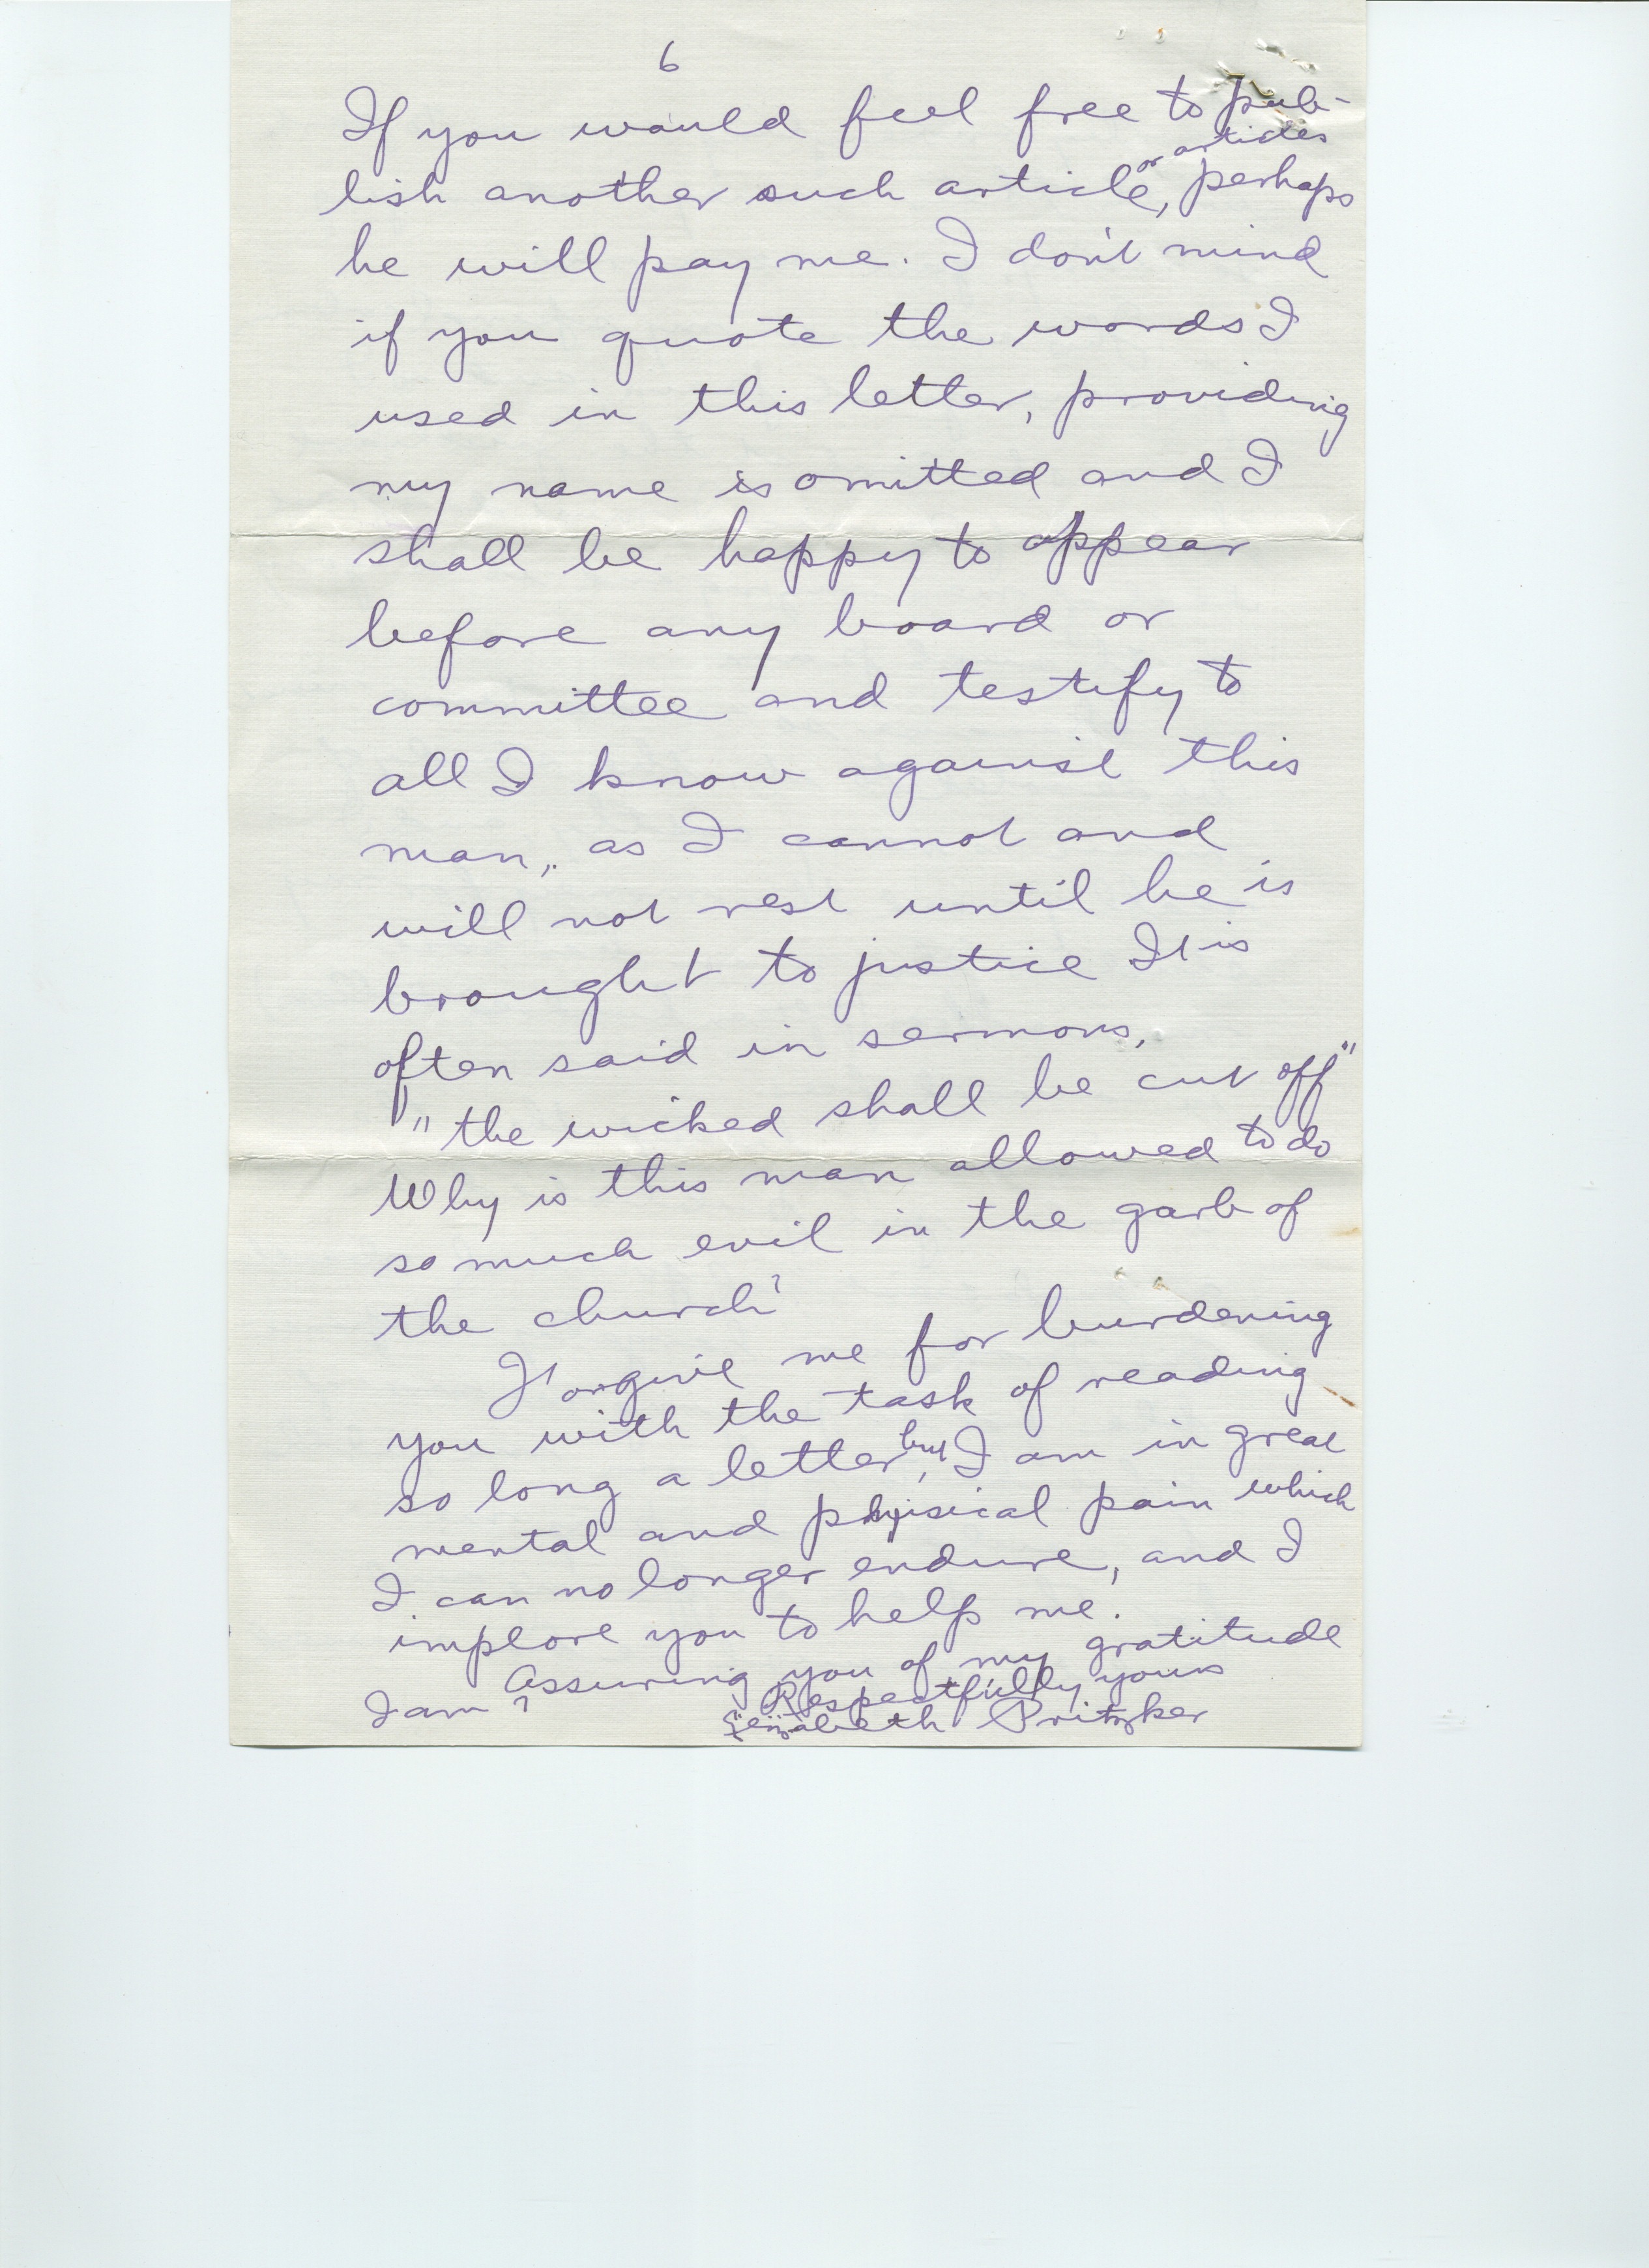 6
If you would feel free to pub-
or articles
lish another such article, perhaps
he will pay me. I don't mind
if you quote the words I
used in this letter, providing
my name is omitted and I
shall be happy to appear
before any board or
committee and testify to
all I know against this
man, as I cannot and
will not rest until he is
brought to justice It is
often said in sermons,
"the wicked shall be cut off"
Why is this man allowed to do
so much evil in the garb of
the church?
Forgive me for burdening
you with the task of reading
so long a letter, but I am in great
mental and physical pain which
I can no longer endure, and I
implore you to help me.
Assuring you of my gratitude
I am Respectfully yours
Elizabeth Pritzker